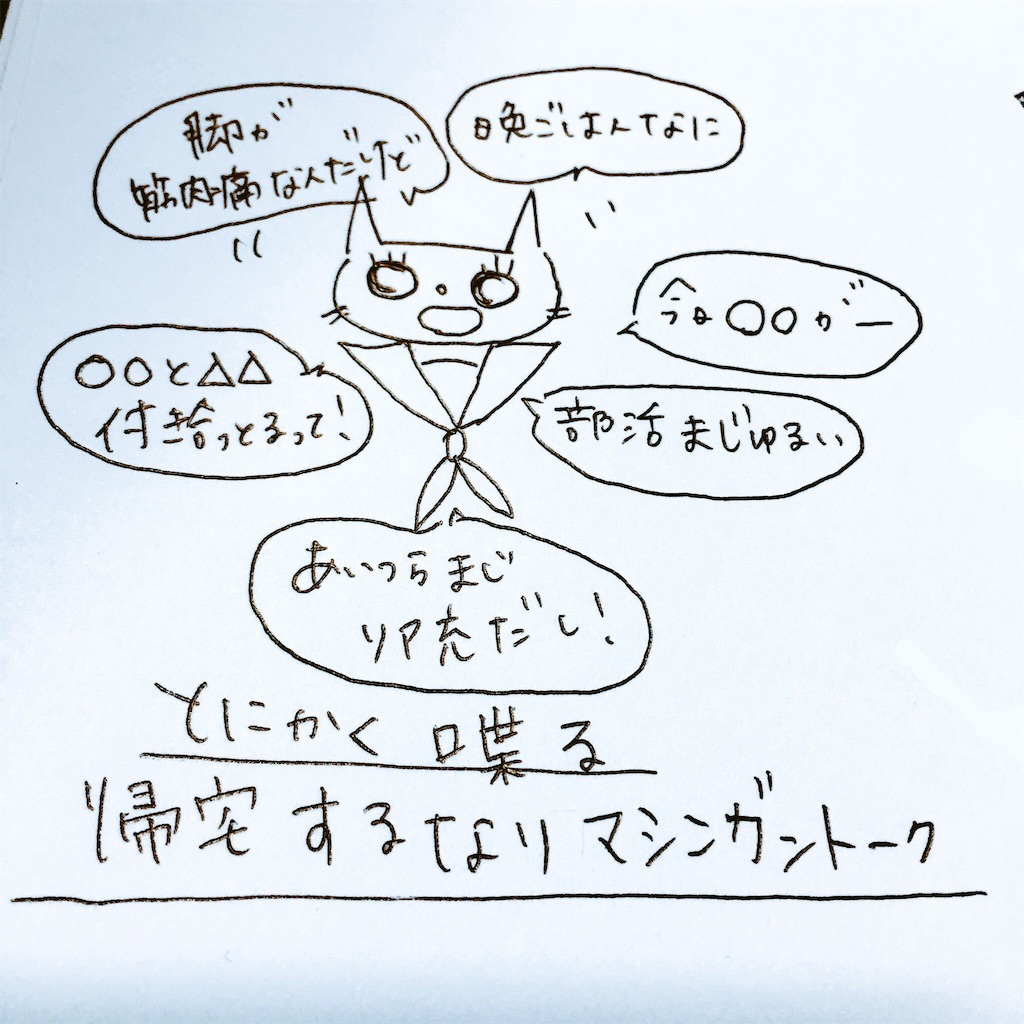 脚が
筋肉痛なんだけど
晩ごはんなに
今日〇〇がー
〇〇と△△
付き合っとるって!
部活まじゆるい
あいつらまじ
リア充だし!
とにかく喋る
帰宅するなりマシンガントーク